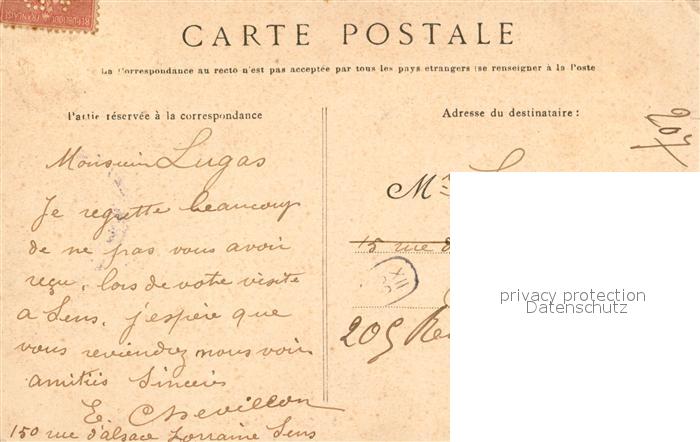 REPUBLIQUE FRANÇAISE
CARTE POSTALE
La Correspondance au recto n'est pas acceptée par tous les pays etrangers (se renseigner à la Poste
Partie réservée à la correspondance
Monsieur Lugas
Je regrette beaucoup
de ne pas vous avoir
reçu, lors de votre visite
a Sens, j'espère que
vous reviendrez nous voir
amitiés Sincères
E. Chevillon
150 rue d'alsace Lorraine Sens
Adresse du destinataire :
M
15 rue d
XIII
205
privacy protection
Datenschutz